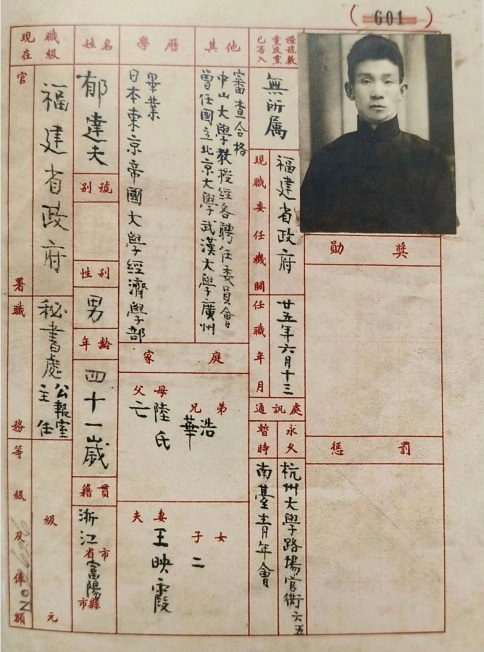 601
現在
職級
官署
福建省政府
職務
秘書處
公報室
主任
等級及俸額
級
元
姓名
郁達夫
別號
性別
男
年齡
四十一歲
籍貫
浙江
省市
富陽
市縣
學歷
日本東京帝國大學經濟學部
畢業
其他
曾任國立北京大學武漢大學廣州
中山大學教授經各聘任委員會
審查合格
家庭
父
亡
母
陸氏
兄弟
華
浩
夫妻
王映霞
子女
二
已否入
黨及黨
證號數
無所屬
現職委任機關
福建省政府
任職年月
廿五年六月十三
通訊處
暫時
南臺青年會
永久
杭州大學路場官衖六五
勛獎
懲罰